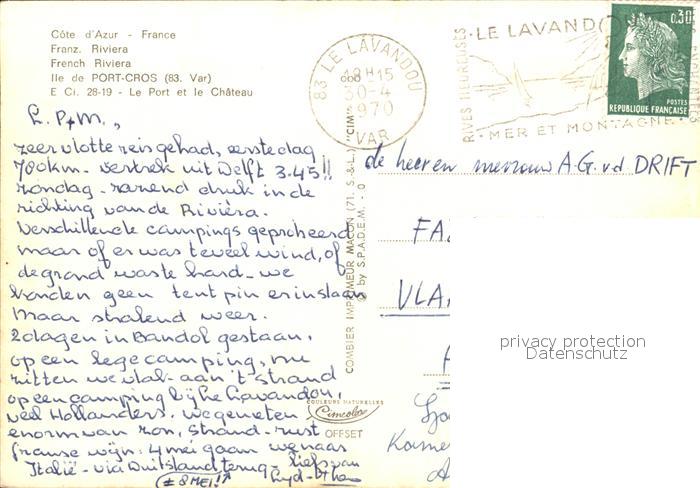 Côte d'Azur - France
Franz. Riviera
French Riviera
Ile de PORT-CROS (83. Var)
E Ci. 28-19 - Le Port et le Château
83 LE LAVANDOU
18H15
30-4
1970
VAR
RIVES HEUREUSES
LE LAVANDOU
MER ET MONTAGNE
0,30
POSTES
REPUBLIQUE FRANÇAISE
L. P+M.,
zeer vlotte reis gehad, eerste dag
780km. vertrek uit Delft 3.45!!
zondag - razend druk in de
richting van de Riviëra.
Verschillende campings geprobeerd
maar of er was teveel wind, of
de grond was te hard - we
konden geen tentpin er inslaan
Maar stralend weer.
2 dagen in Bandol gestaan,
op een lege camping, nu
zitten we vlak aan 't strand
op een camping bij he Lavandou,
veel Hollanders. we genieten
enorm van zon, strand - rust
franse wijn. 4 mei gaan we naar
Italië - via Duitsland terug - liefs van
± 8 MEI!!
de heer en mevrouw A.G. v.d DRIFT
FA
VLA
COMBIER IMPRIMEUR MACON (71. S.-&-L.) "CIM"
© by S.P.A.D.E.M.
COULEURS NATURELLES
Cimcolor
OFFSET
privacy protection
Datenschutz